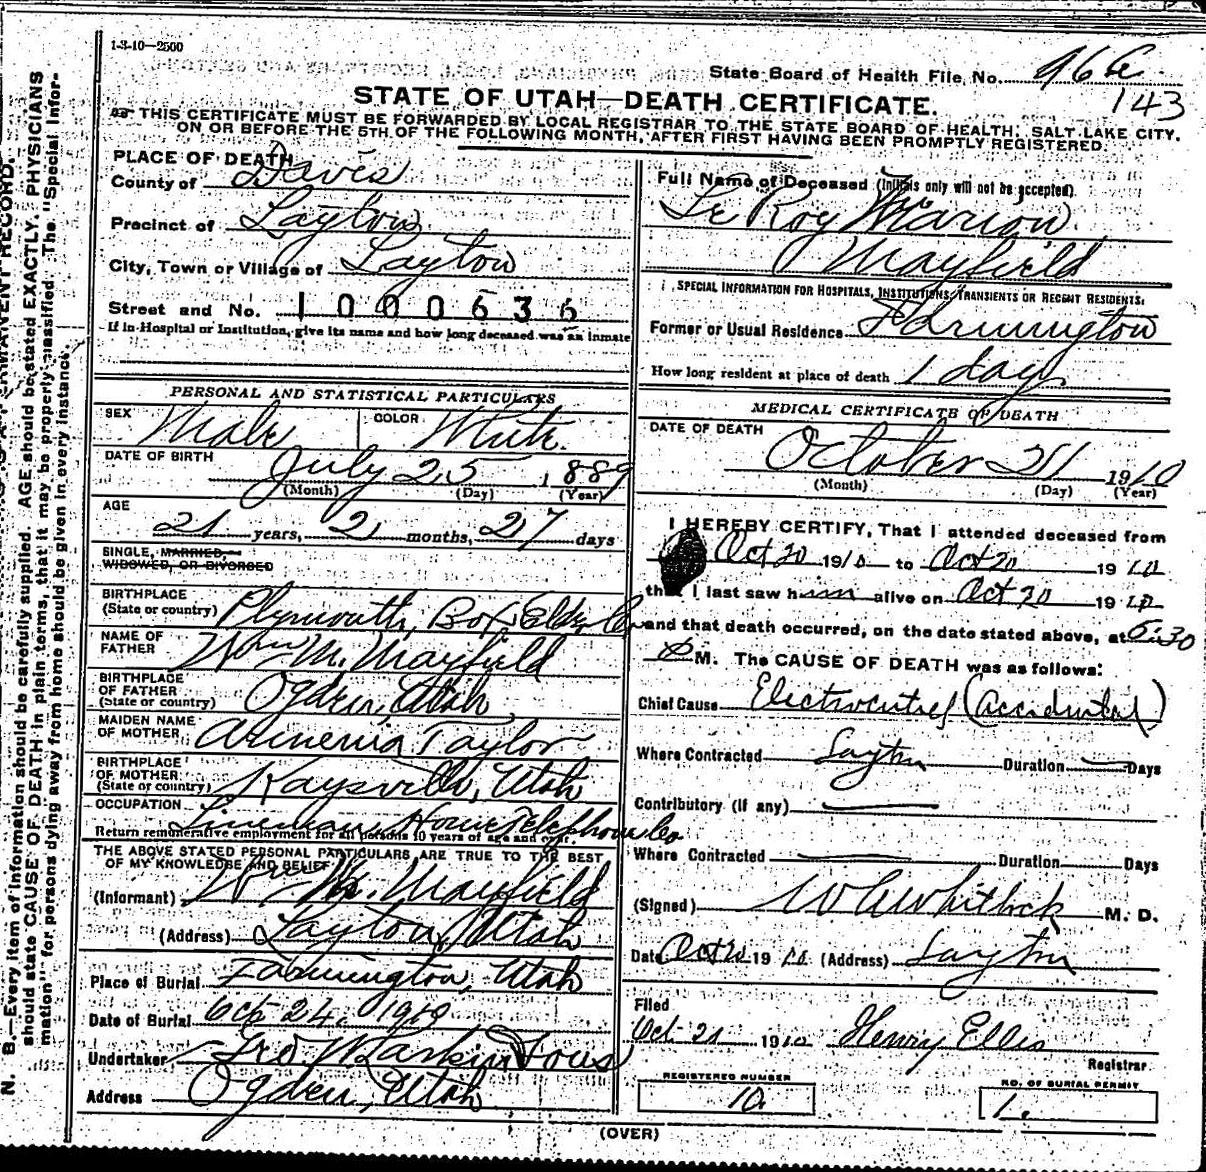 1-3-10—2500
State Board of Health File, No. 96 C
143
STATE OF UTAH—DEATH CERTIFICATE.
THIS CERTIFICATE MUST BE FORWARDED BY LOCAL REGISTRAR TO THE STATE BOARD OF HEALTH, SALT LAKE CITY,
ON OR BEFORE THE 5TH OF THE FOLLOWING MONTH, AFTER FIRST HAVING BEEN PROMPTLY REGISTERED.
N. B.—Every item of information should be carefully supplied. AGE should be stated EXACTLY. PHYSICIANS
should state CAUSE OF DEATH in plain terms, that it may be properly classified. The "Special Infor-
mation" for persons dying away from home should be given in every instance.
PLACE OF DEATH
County of Davis
Precinct of Layton
City, Town or Village of Layton
Street and No. 1000636
If in Hospital or Institution, give its name and how long deceased was an inmate
PERSONAL AND STATISTICAL PARTICULARS
SEX Male COLOR White.
DATE OF BIRTH July 25 1889
(Month) (Day) (Year)
AGE
21 years, 2 months, 27 days
SINGLE, MARRIED,
WIDOWED, OR DIVORCED
BIRTHPLACE
(State or country) Plymouth, Box Elder Co
NAME OF
FATHER Wm M. Mayfield
BIRTHPLACE
OF FATHER
(State or country) Ogden, Utah
MAIDEN NAME
OF MOTHER Armenia Taylor
BIRTHPLACE
OF MOTHER
(State or country) Kaysville, Utah
OCCUPATION Lineman Home Telephone Co
Return remunerative employment for all persons 10 years of age and over.
THE ABOVE STATED PERSONAL PARTICULARS ARE TRUE TO THE BEST
OF MY KNOWLEDGE AND BELIEF
(Informant) Wm M. Mayfield
(Address) Layton, Utah
Place of Burial Farmington, Utah
Date of Burial Oct 24, 1910
Undertaker Larkin Sons
Address Ogden, Utah
Full Name of Deceased (Initials only will not be accepted).
Le Roy Marion
Mayfield
SPECIAL INFORMATION FOR HOSPITALS, INSTITUTIONS, TRANSIENTS OR RECENT RESIDENTS.
Former or Usual Residence Farmington
How long resident at place of death 1 day
MEDICAL CERTIFICATE OF DEATH
DATE OF DEATH
October 21 1910
(Month) (Day) (Year)
I HEREBY CERTIFY, That I attended deceased from
Oct 20 1910 to Oct 20 1910
that I last saw him alive on Oct 20 1910
and that death occurred, on the date stated above, at 5:30
P M. The CAUSE OF DEATH was as follows:
Chief Cause Electrocuted (Accidental)
Where Contracted Layton Duration — Days
Contributory (if any) —
Where Contracted — Duration Days
(Signed) W A Whitlock M. D.
Date Oct 20 1910 (Address) Layton
Filed
Oct 21 1910 Henry Ellis
Registrar
REGISTERED NUMBER
10
NO. OF BURIAL PERMIT
1.
(OVER)